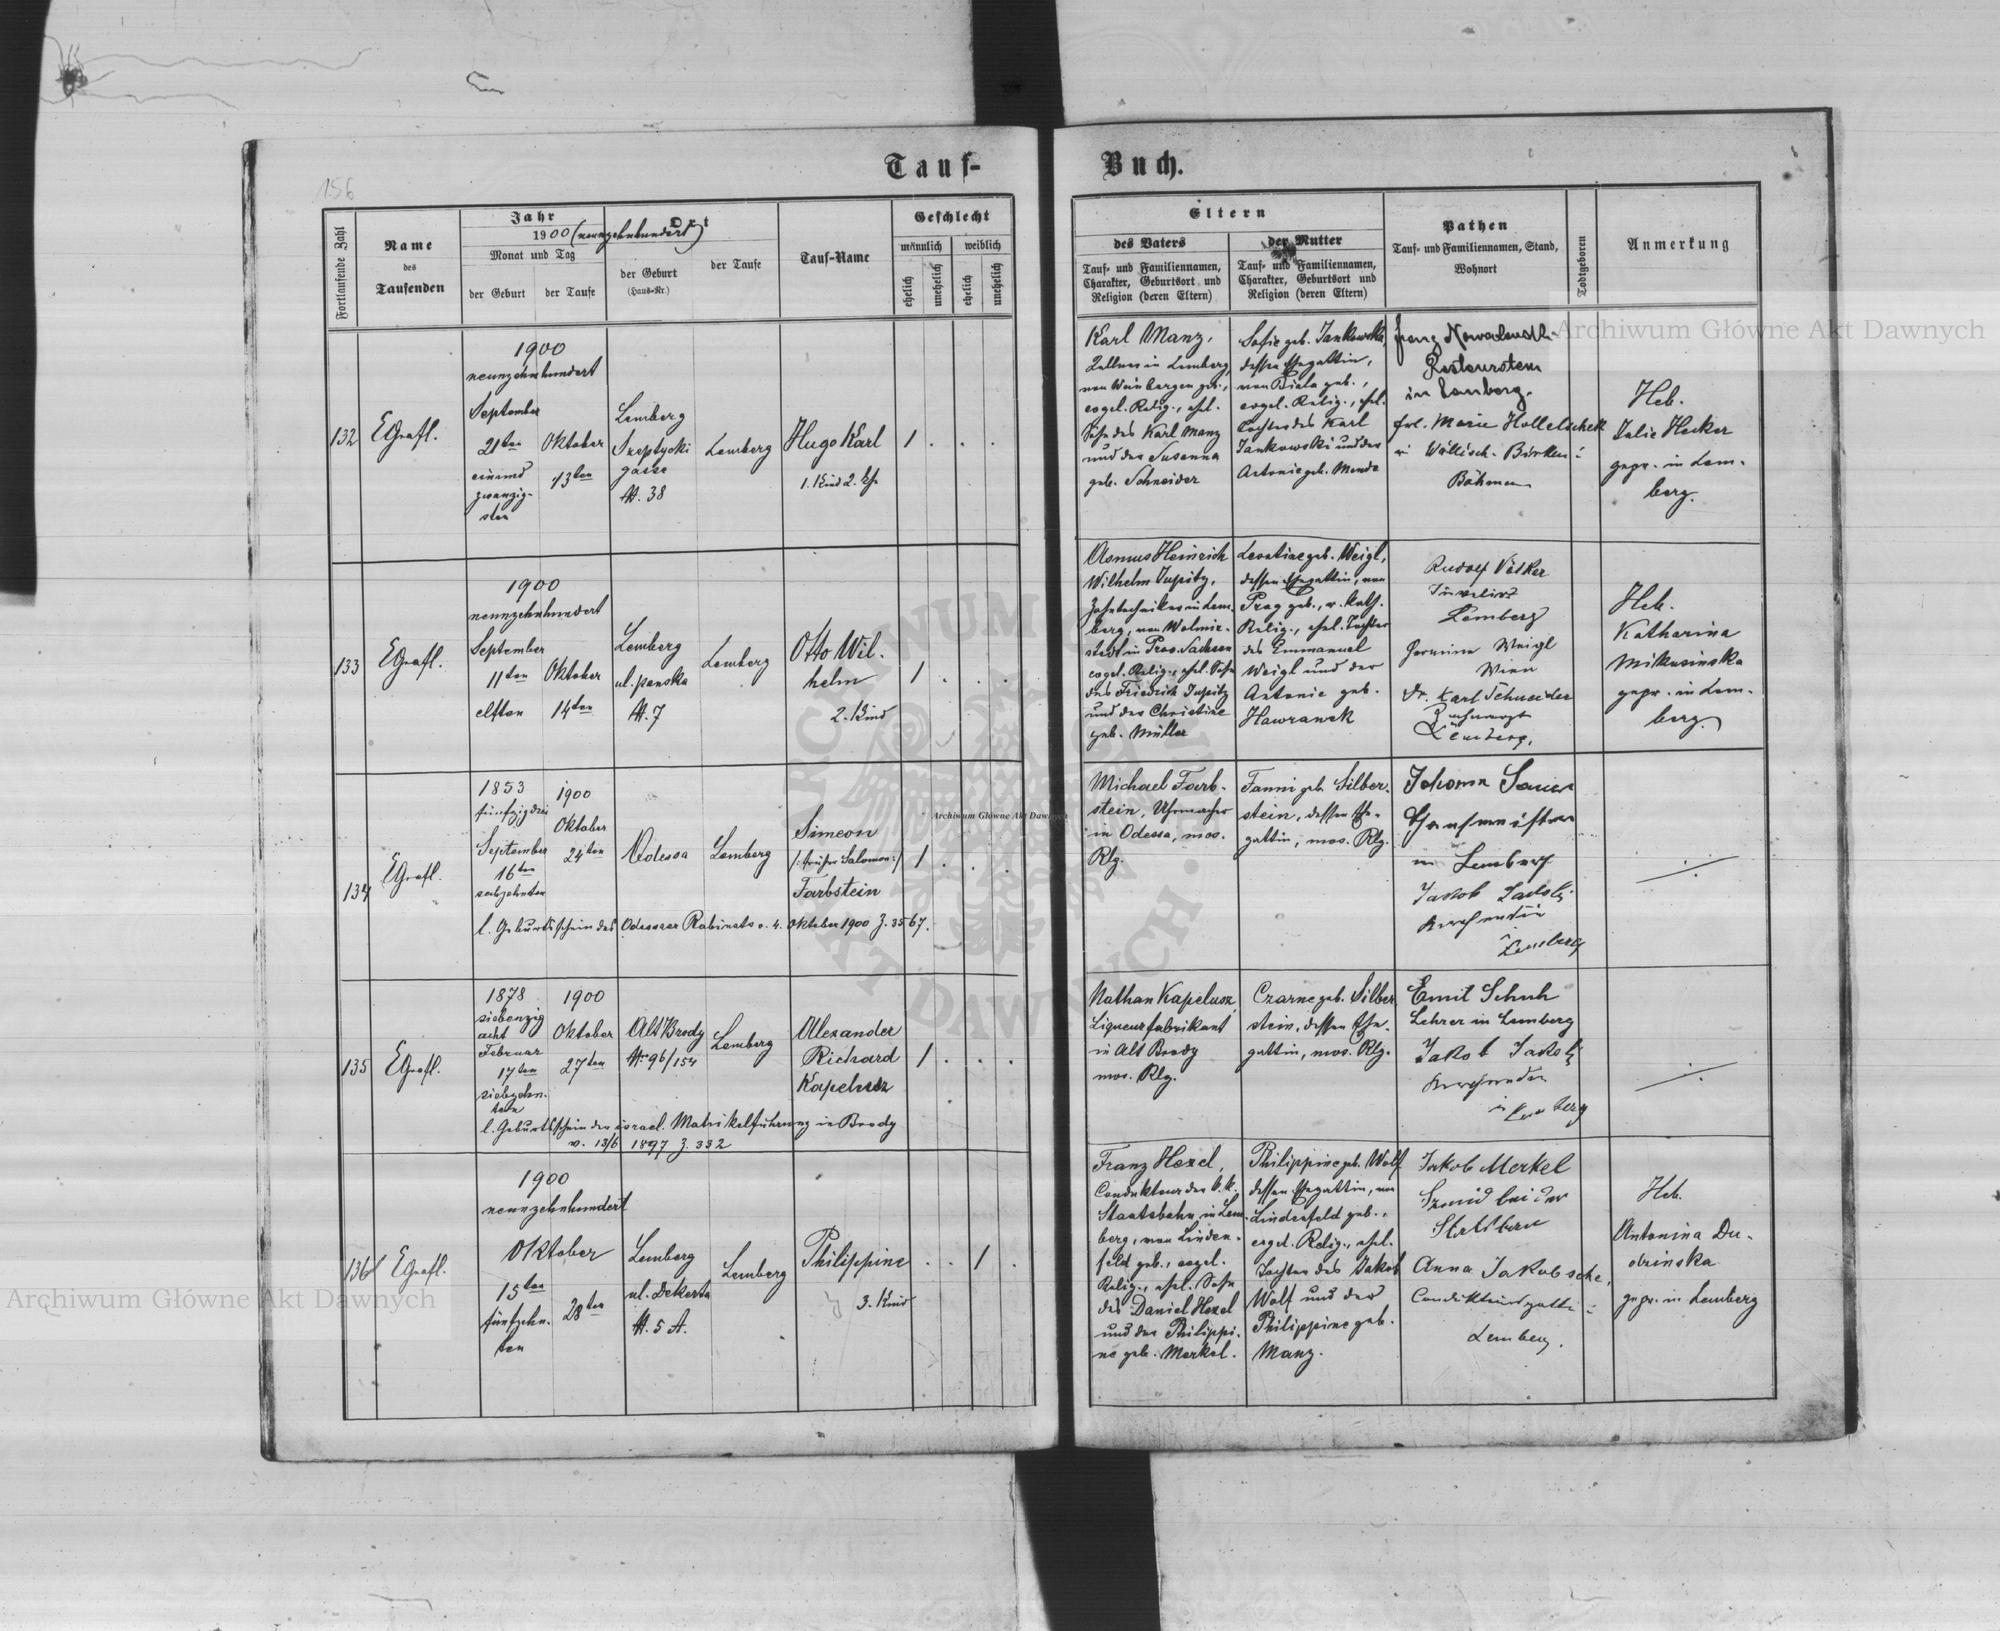 156
Tauf-
Buch.
Fortlaufende Zahl
Name
des
Taufenden
Jahr
1900 (neunzehnhundert)
Monat und Tag
der Geburt
der Taufe
Ort
der Geburt
(Haus-Nr.)
der Taufe
Tauf-Name
Geschlecht
männlich
weiblich
ehelich
unehelich
ehelich
unehelich
Eltern
des Vaters
Tauf- und Familiennamen,
Charakter, Geburtsort und
Religion (deren Eltern)
der Mutter
Tauf- und Familiennamen,
Charakter, Geburtsort und
Religion (deren Eltern)
Pathen
Tauf- und Familiennamen, Stand,
Wohnort
Todtgeboren
Anmerkung
132
1900
neunzehnhundert
September
21ten
einund
zwanzig-
sten
Oktober
13ten
Lemberg
Szeptycki
gasse
N. 38
Lemberg
Hugo Karl
1. Kind 2. Ehe
1
Karl Manz,
Kellner in Lemberg,
von Weinbergen geb.,
evgel. Relig., ehel.
Sohn des Karl Manz
und der Susanna
geb. Schneider
Sofie geb. Jankowska,
dessen Ehegattin,
von Biala geb.,
evgel. Relig., ehel.
Tochter des Karl
Jankowski und der
Antonie geb.
Franz
in Lemberg.
frl. Marie
Böhmen
Heb.
Julie Hecker
gepr. in Lem-
berg.
133
1900
neunzehnhundert
September
11ten
elften
Oktober
14ten
Lemberg
ul. panska
N. 7
Lemberg
Otto Wil-
helm
2. Kind
1
Asmus Heinrich
Wilhelm Jupitz,
Zahntechniker in Lem-
berg, von Wolmir-
stedt in Prov. Sachsen
evgel. Relig., ehel. Sohn
des Friedrich Jupitz
und der Christine
geb. Müller
Leontine geb. Weigl,
dessen Ehegattin, von
Prag geb., r. kath.
Relig., ehel. Tochter
des Emmanuel
Weigl und der
Antonie geb.
Hawranek
Rudolf Völker
Juwelier
Lemberg
Hermine Weigl
Wien
Dr. Karl Schneider
Zahnarzt
Lemberg.
Heb.
Katharina
Mikusinska
gepr. in Lem-
berg.
134
1853
fünfzigdrei
September
16ten
sechzehnten
1900
Oktober
24ten
Odessa
Lemberg
Simeon
/: früher Salomon :/
Farbstein
1
l. Geburtsschein des Odessaer Rabinats v. 4. Oktober 1900 Z. 3567.
Michael Farb-
stein, Uhrmacher
in Odessa, mos.
Rlg.
Fanni geb. Silber-
stein, dessen Ehe-
gattin, mos. Rlg.
Johann
in Lemberg
Jakob
Lemberg
135
1878
siebenzig
acht
Februar
17ten
siebzehn-
ten
1900
Oktober
27ten
Alt Brody
Nr 96/154
Lemberg
Alexander
Richard
Kapelusz
1
l. Geburtsschein der israel. Matrikelführung in Brody
v. 13/6 1897 Z. 332
Nathan Kapelusz,
Liqueurfabrikant
in Alt Brody
mos. Rlg.
Czarne geb. Silber
stein, dessen Ehe-
gattin, mos. Rlg.
Emil Schuh
Lehrer in Lemberg
Jakob
in Lemberg
136
1900
neunzehnhundert
Oktober
15ten
fünfzehn-
ten
28ten
Lemberg
ul. Dekerta
N. 5 A.
Lemberg
Philippine
3. Kind
1
Franz Hexel,
Condukteur der k.k.
Staatsbahn in Lem-
berg, von Linden-
feld geb., evgel.
Relig., ehel. Sohn
des Daniel Hexel
und der Philippi-
ne geb. Merkel.
Philippine geb. Wolf
dessen Ehegattin, von
Lindenfeld geb.,
evgel. Relig., ehel.
Tochter des Jakob
Wolf und der
Philippine geb.
Manz.
Jakob Merkel
bei der
Anna Jakobsche,
Lemberg.
Heb.
Antonina Du-
gepr. in Lemberg
Archiwum Główne Akt Dawnych
Archiwum Główne Akt Dawnych
Archiwum Główne Akt Dawnych